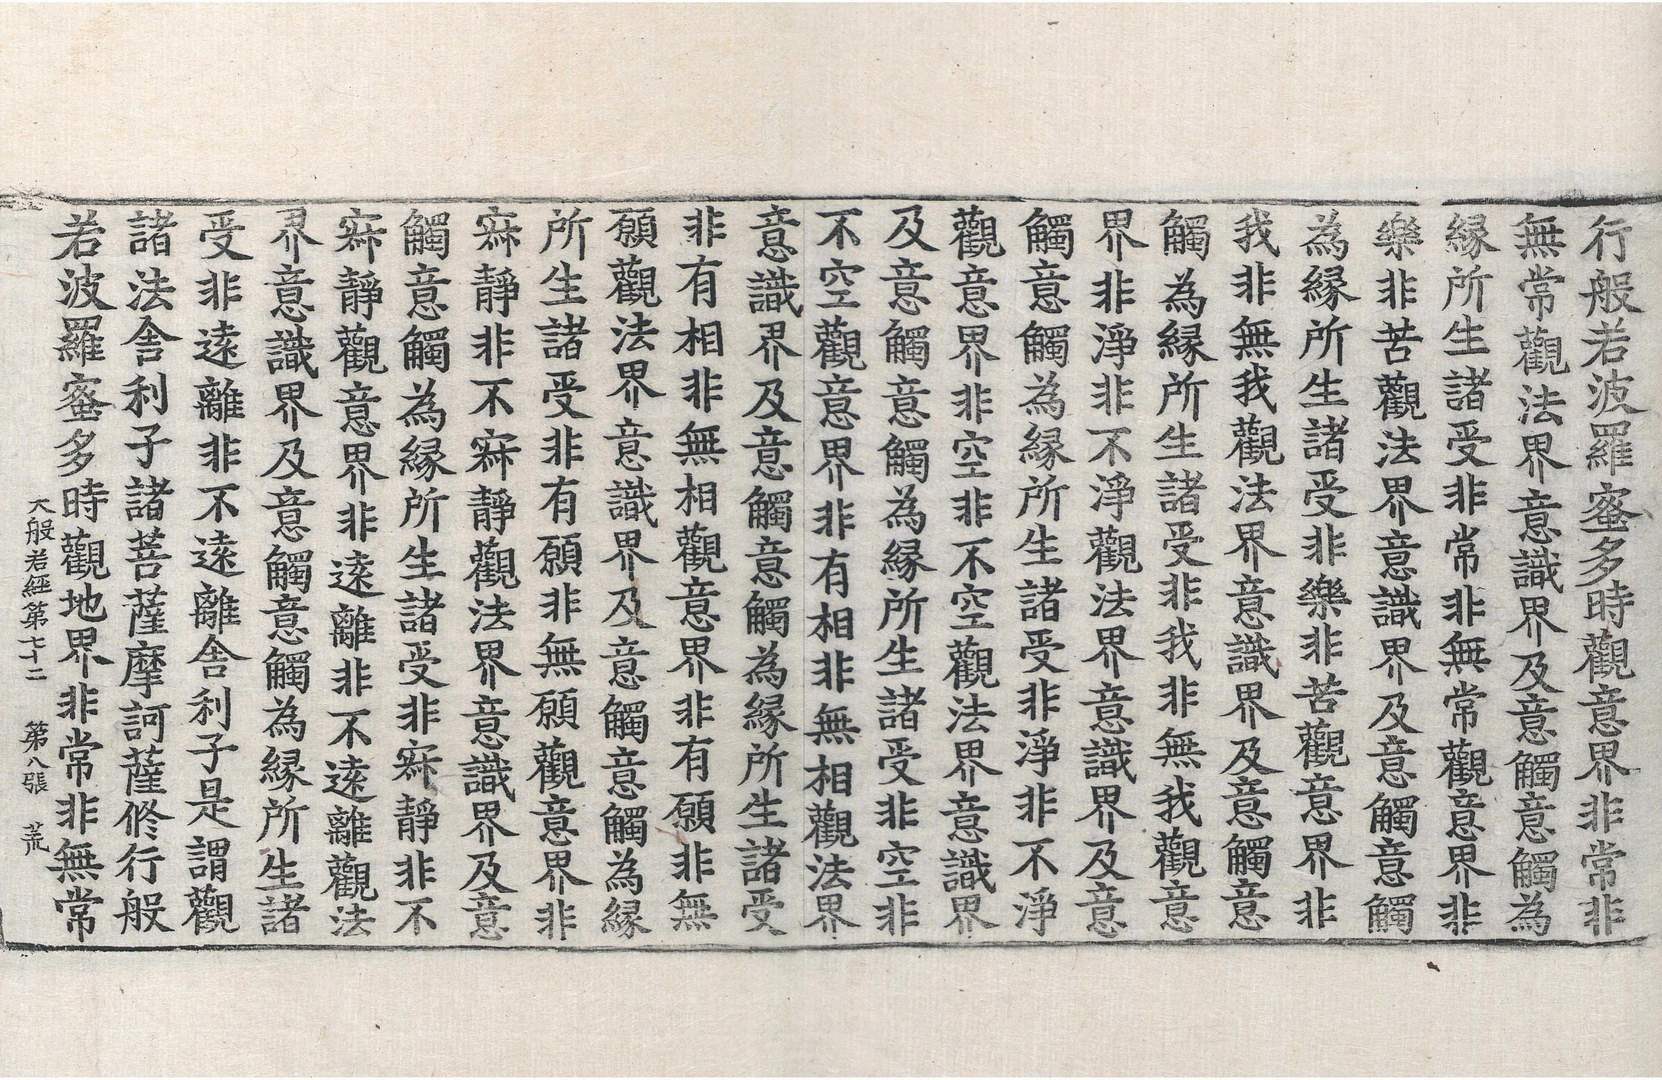 行般若波羅蜜多時觀意界非常非
無常觀法界意識界及意觸意觸為
緣所生諸受非常非無常觀意界非
樂非苦觀法界意識界及意觸意觸
為緣所生諸受非樂非苦觀意界非
我非無我觀法界意識界及意觸意
觸為緣所生諸受非我非無我觀意
界非淨非不淨觀法界意識界及意
觸意觸為緣所生諸受非淨非不淨
觀意界非空非不空觀法界意識界
及意觸意觸為緣所生諸受非空非
不空觀意界非有相非無相觀法界
意識界及意觸意觸為緣所生諸受
非有相非無相觀意界非有願非無
願觀法界意識界及意觸意觸為緣
所生諸受非有願非無願觀意界非
寂靜非不寂靜觀法界意識界及意
觸意觸為緣所生諸受非寂靜非不
寂靜觀意界非遠離非不遠離觀法
界意識界及意觸意觸為緣所生諸
受非遠離非不遠離舍利子是謂觀
諸法舍利子諸菩薩摩訶薩修行般
若波羅蜜多時觀地界非常非無常
大般若經第七十二 第八張 荒